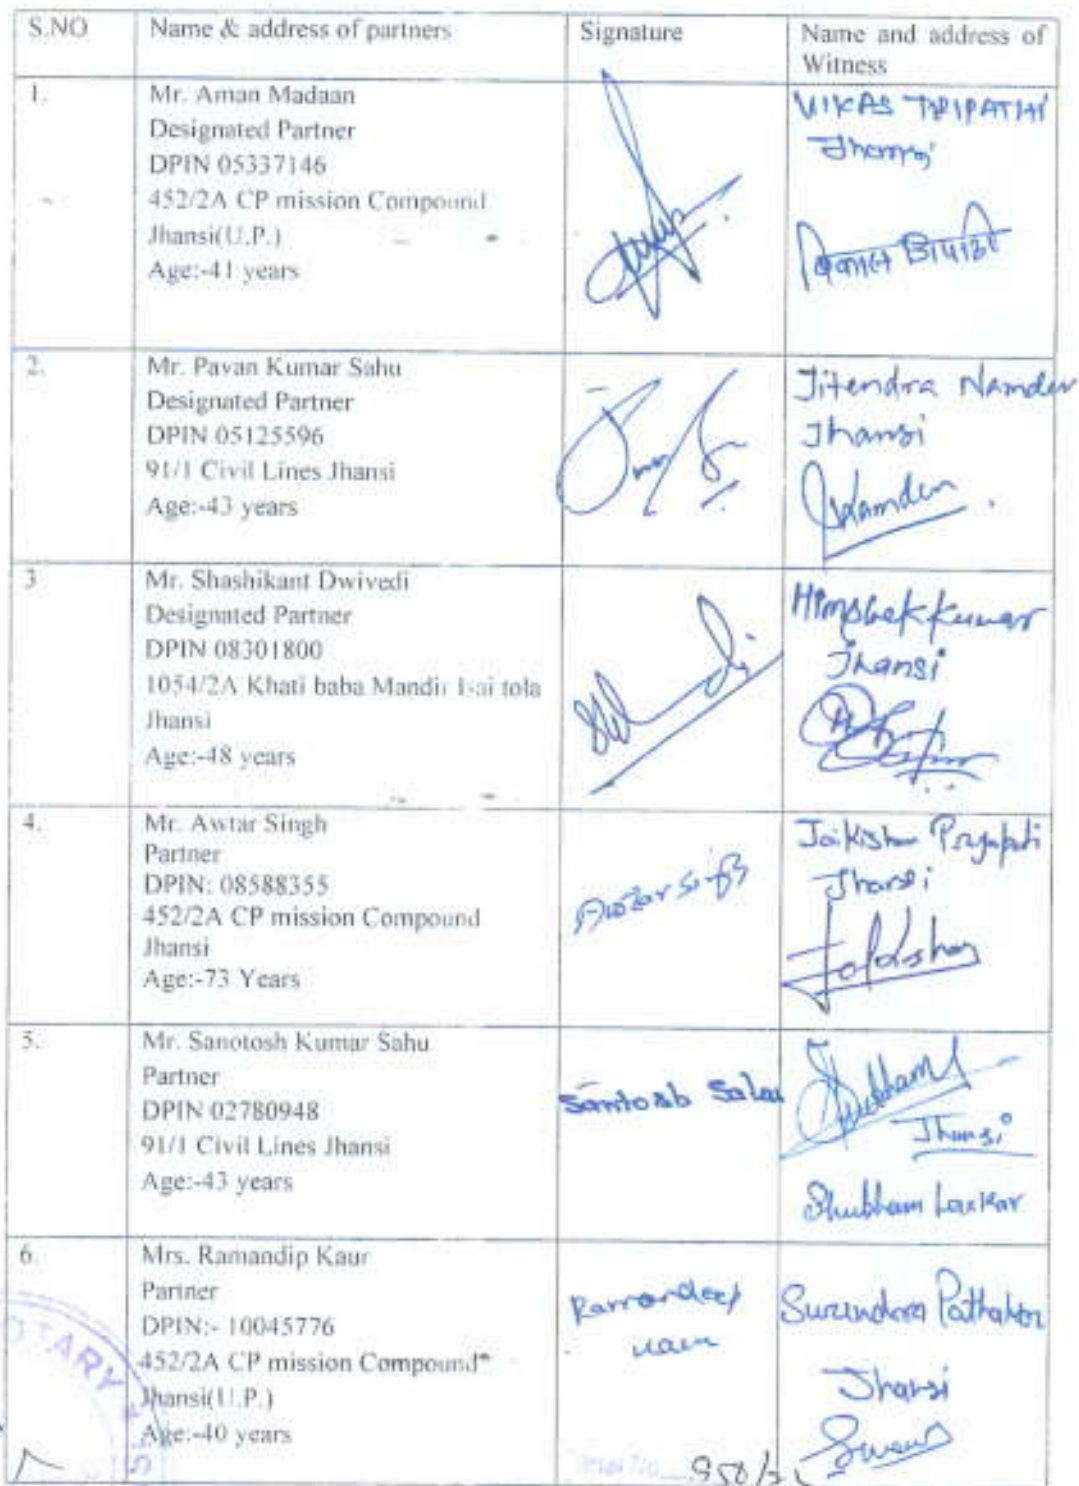 S.NO
Name & address of partners
Signature
Name and address of
Witness
1.
Mr. Aman Madaan
Designated Partner
DPIN 05337146
452/2A CP mission Compound
Jhansi(U.P.)
Age:-41 years
VIKAS TRIPATHI
Jhansi
2.
Mr. Pavan Kumar Sahu
Designated Partner
DPIN 05125596
91/1 Civil Lines Jhansi
Age:-43 years
Jitendra Namdev
Jhansi
3
Mr. Shashikant Dwivedi
Designated Partner
DPIN 08301800
1054/2A Khati baba Mandir Isai tola
Jhansi
Age:-48 years
Kumar
Jhansi
4.
Mr. Awtar Singh
Partner
DPIN: 08588355
452/2A CP mission Compound
Jhansi
Age:-73 Years
Jaikishan Prajapati
Jhansi
5.
Mr. Sanotosh Kumar Sahu
Partner
DPIN 02780948
91/1 Civil Lines Jhansi
Age:-43 years
Santosh Sahu
Shubham
Jhansi
Shubham
6.
Mrs. Ramandip Kaur
Partner
DPIN:- 10045776
452/2A CP mission Compound
Jhansi(U.P.)
Age:-40 years
Ramandeep
Kaur
Surendra
Jhansi
NOTARY